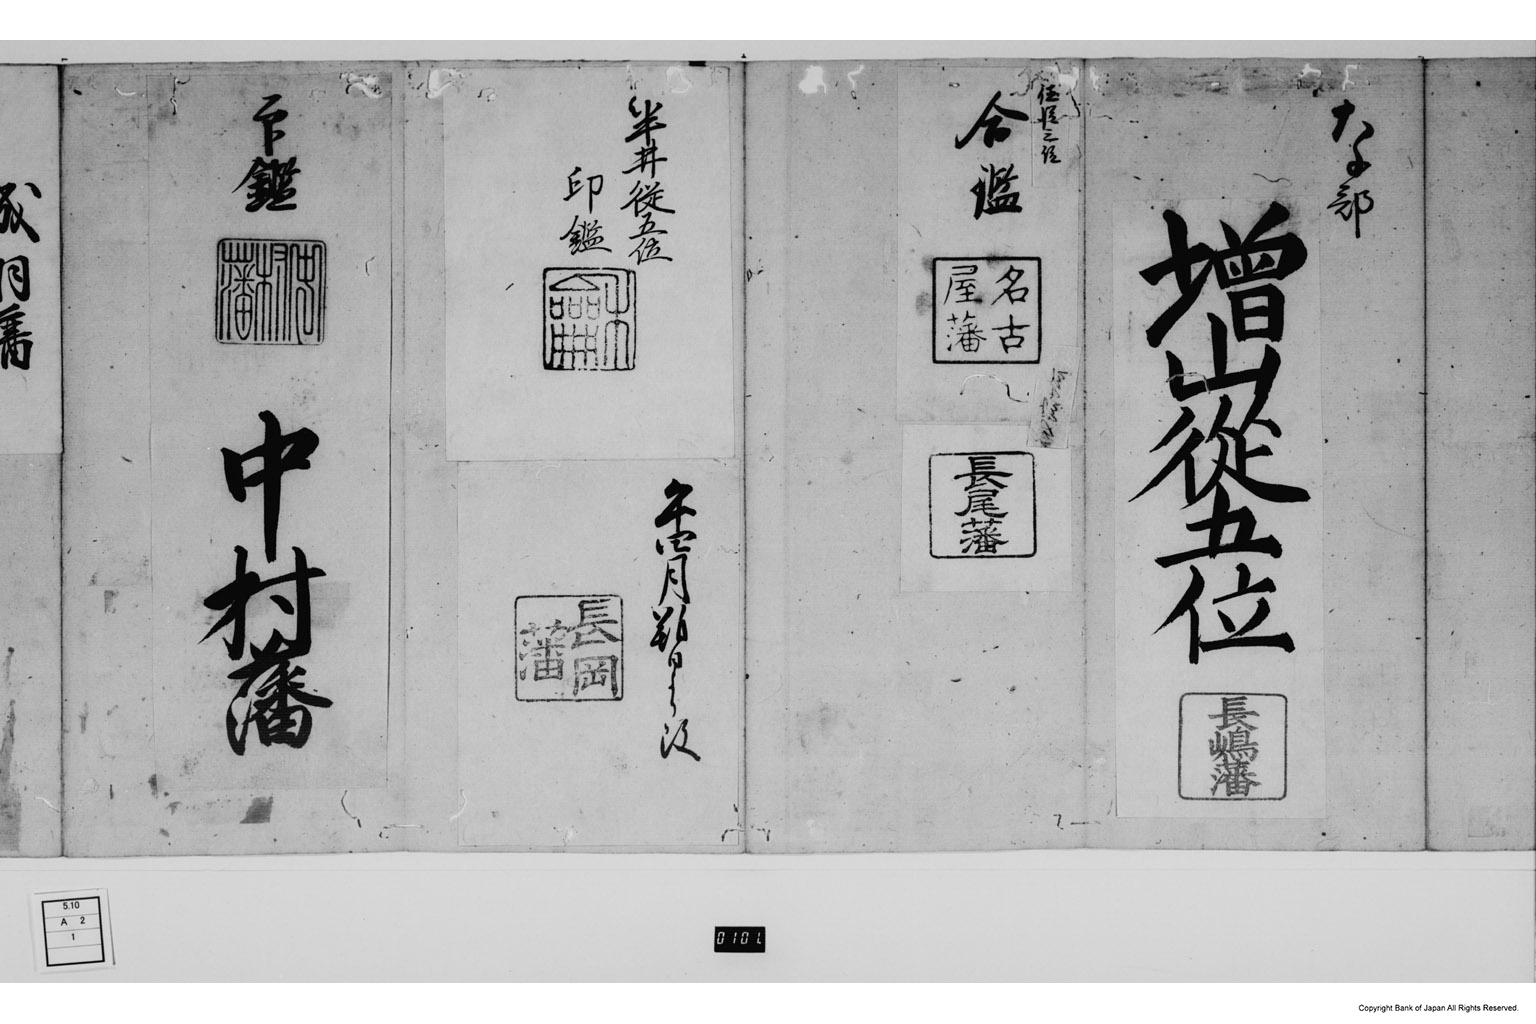 な之部
増山従五位
長嶋藩
合鑑
名古
屋藩
長尾藩
半井従五位
印鑑
午四月朔日ゟ改
長岡
藩
印鑑
中村藩
中村藩
5.10
A 2
1
Copyright Bank of Japan All Rights Reserved.